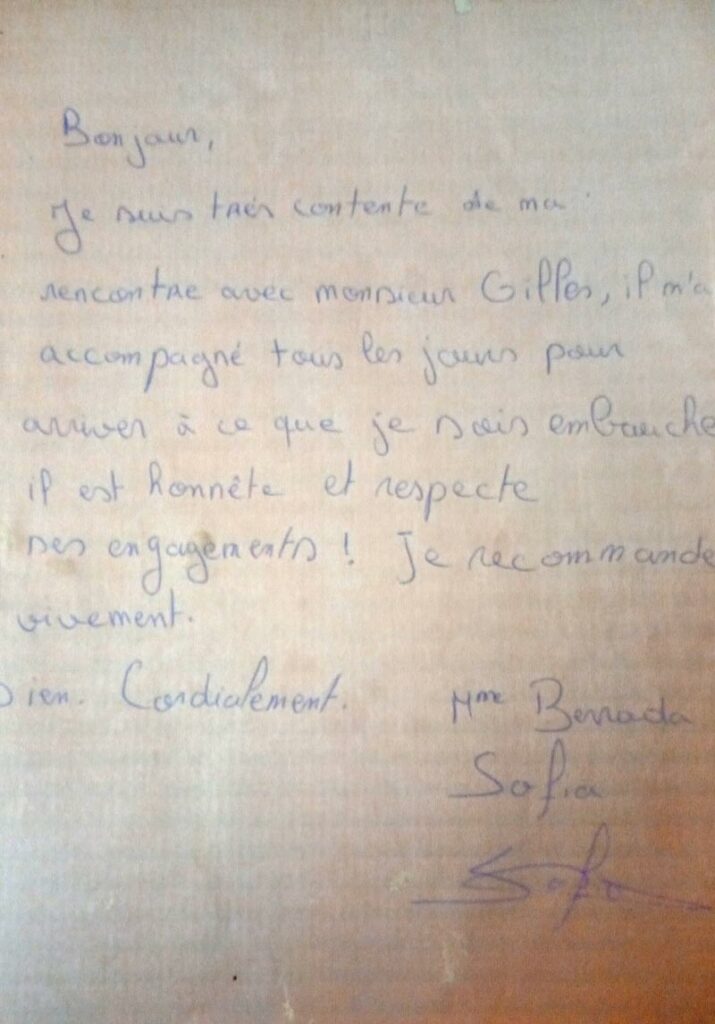 Bonjour,
Je suis très contente de ma
rencontre avec monsieur Gilles, il m'a
accompagné tous les jours pour
arriver à ce que je sois embauche
il est honnête et respecte
ses engagements ! Je recommande
vivement.
Bien. Cordialement.
Mme Berrada
Sofia
Sofia